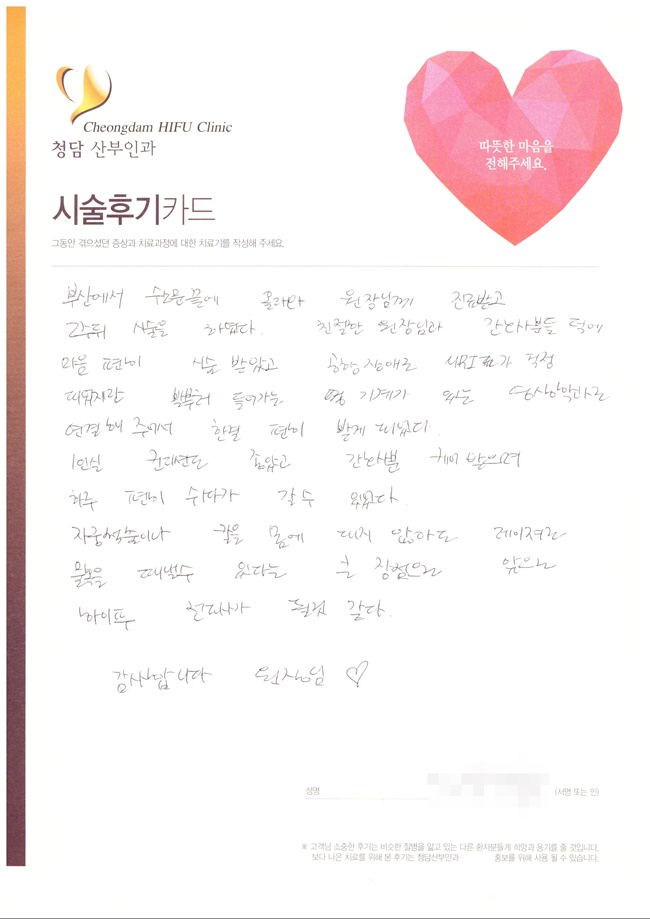 Cheongdam HIFU Clinic
청담 산부인과
따뜻한 마음을
전해주세요.
시술후기카드
그동안 겪으셨던 증상과 치료과정에 대한 치료기를 작성해 주세요.
부산에서 수소문끝에 올라와 원장님께 진료받고
2주뒤 시술을 하였다. 친절한 원장님과 간호사분들 덕에
마음 편히 시술 받았고 공황장애로 MRI 가 걱정
되었지만 발부터 들어가는 기계가 있는 영상의학과로
연결해 주어서 한결 편히 받게 되었다.
1인실 컨디션도 좋았고 간호사분 케어 받으며
하루 편히 쉬다가 갈 수 있었다.
자궁적출이나 칼을 몸에 대지 않아도 레이져로
물혹을 떼낼수 있다는 큰 장점으로 앞으로
하이푸 전도사가 될것 같다.
감사합니다 원장님 ♡
성명 (서명 또는 인)
※ 고객님 소중한 후기는 비슷한 질병을 앓고 있는 다른 환자분들게 희망과 용기를 줄 것입니다.
보다 나은 치료를 위해 본 후기는 청담산부인과· 홍보를 위해 사용 될 수 있습니다.